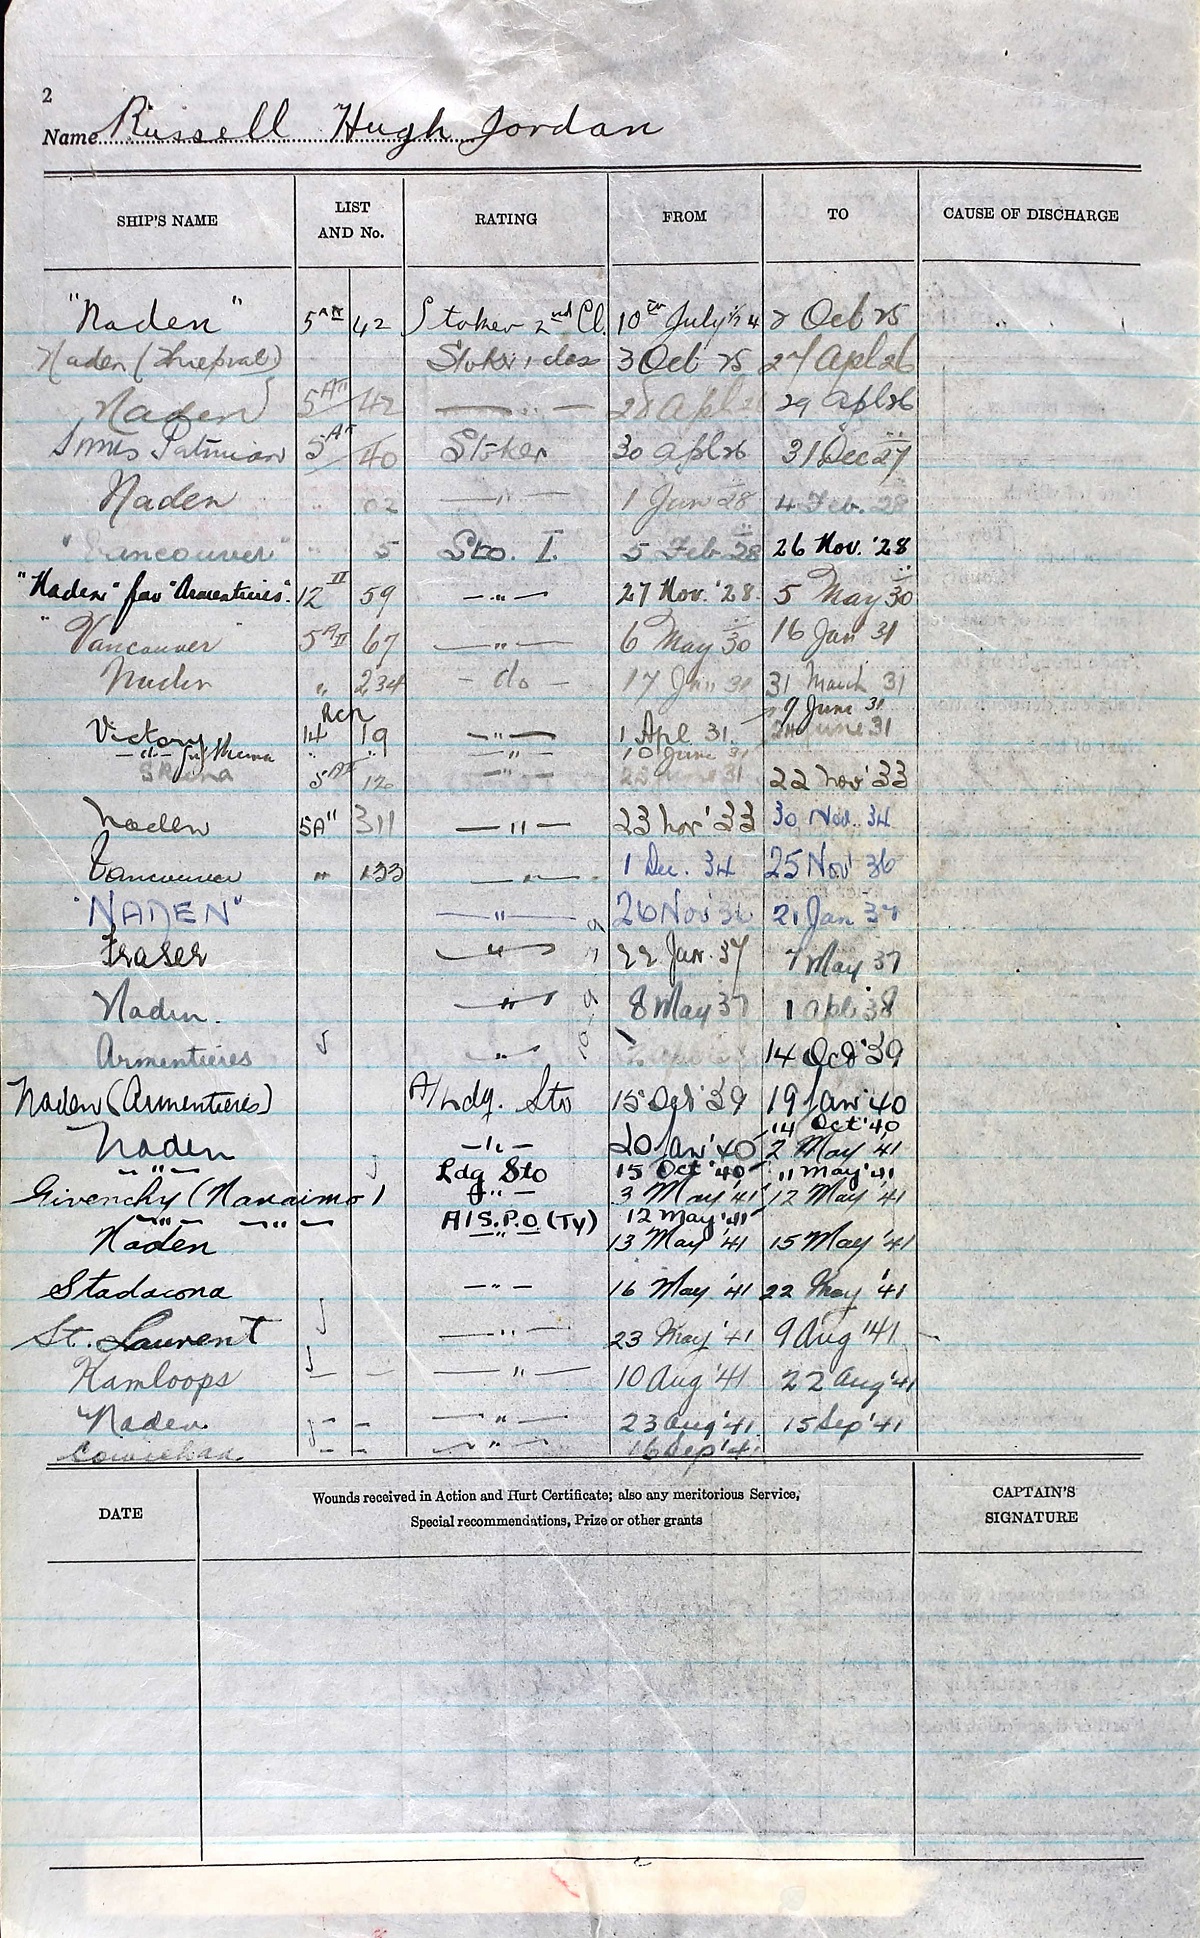 2
Name Russell Hugh Jordan
SHIP'S NAME LIST AND No. RATING FROM TO CAUSE OF DISCHARGE
"Naden" 42 Stoker 2nd Cl. 10th July 2 Oct 25
Naden (Thiepval) Stoker 1 class 3 Oct 25 27 Apl 26
Naden 5AII 42 — " — 28 Apl 29 Apl 26
5AII 40 Stoker 30 Apl 26 31 Dec 27
Naden " 02 — " — 1 Jan 28 4 Feb. 28
"Vancouver" " 5 Sto. I. 5 Feb. 28 26 Nov. '28
"Naden" for "Armentieres". 12 II 59 — " — 27 Nov. '28. 5 May 30
"Vancouver" 5AII 67 — " — 6 May 30 16 Jan 31
Naden " 234 - do - 17 Jan 31 31 March 31
9 June 31
Victory 14 19 — " — 1 Apl. 31. 24 June 31
— " — for Skeena " " — " — 10 June 31
Skeena 5AII 12 — " — June 31 22 Nov '33
Naden 5A" 311 — " — 23 Nov '33 30 Nov. 34
Vancouver " 133 — " — 1 Dec. 34 25 Nov 36
"NADEN" — " — 26 Nov '36 21 Jan 37
Fraser — " — 22 Jan. 37 7 May 37
Naden. — " — 8 May 37 1 Apl 38
Armentieres — " — 14 Oct '39
Naden (Armentieres) A/Ldg. Sto 15 Oct '39 19 Jan '40
14 Oct '40
Naden — " — 20 Jan '40 2 May '41
— " — Ldg Sto 15 Oct '40 11 May '41
Givenchy (Nanaimo) — " — 3 May '41 12 May '41
— " — — " — A/S.P.O (Ty) 12 May '41
Naden — " — 13 May '41 15 May '41
Stadacona — " — 16 May '41 22 May '41
St. Laurent — " — 23 May '41 9 Aug '41
Kamloops — — — " — 10 Aug '41 22 Aug '41
Naden — — — " — 23 Aug '41 15 Sep '41
Cowichan. — — — " — 16 Sep '41
DATE Wounds received in Action and Hurt Certificate; also any meritorious Service, CAPTAIN'S
Special recommendations, Prize or other grants SIGNATURE